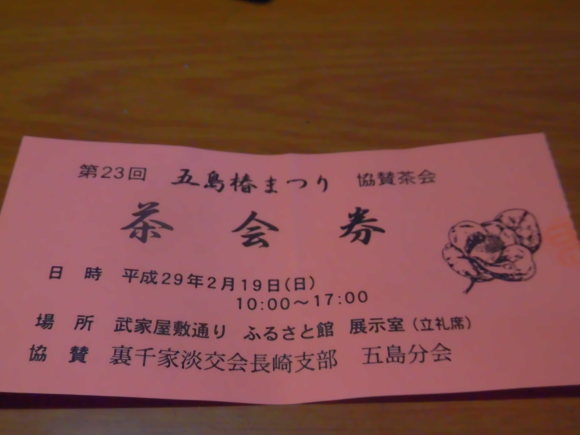 第23回 五島椿まつり 協賛茶会
茶会券
日時 平成29年2月19日(日)
10:00～17:00
場所 武家屋敷通り ふるさと館 展示室(立礼席)
協賛 裏千家淡交会長崎支部 五島分会